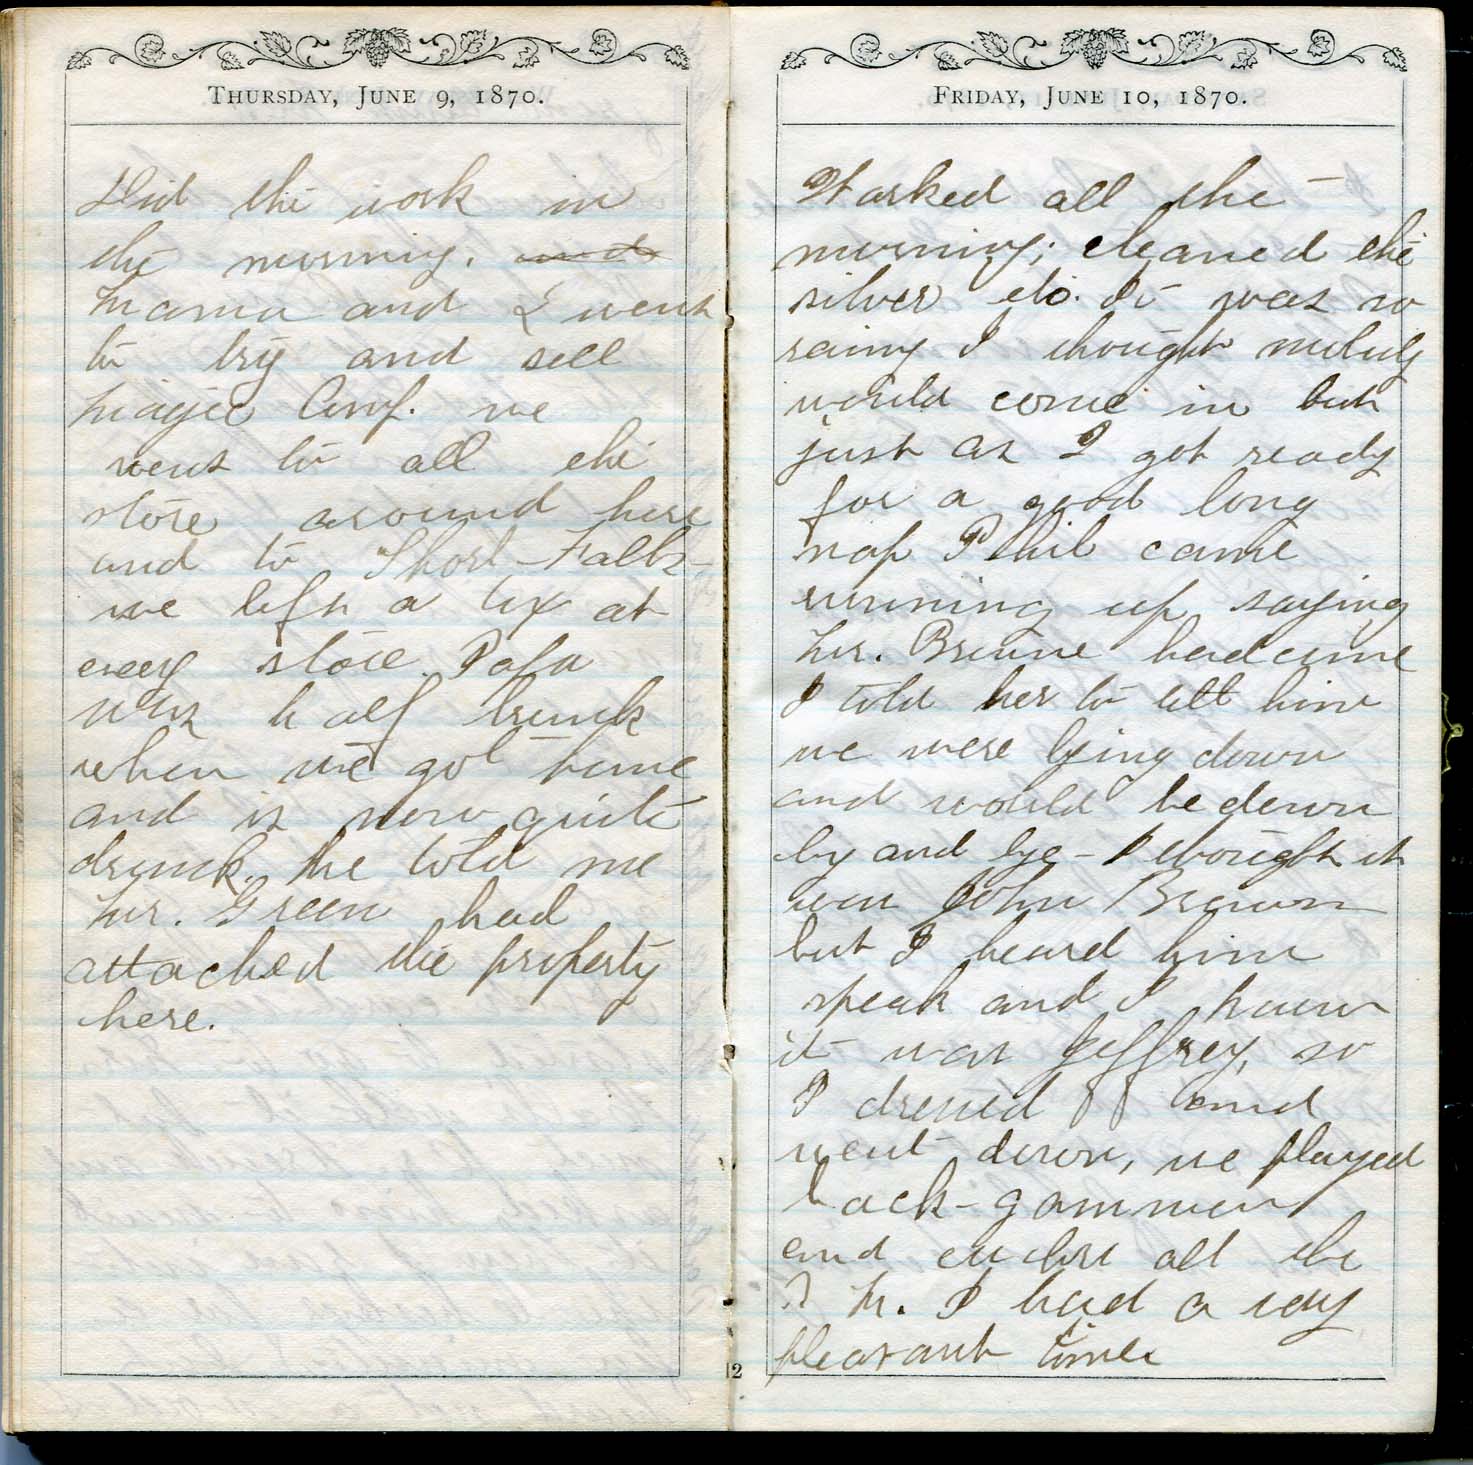 THURSDAY, JUNE 9, 1870.
Did the work in
the morning. and
Mama and I went
to try and sell
magic Comp. we
went to all the
store around here
and to Short-Falls-
we left a box at
every store. Papa
was half drunk
when we got home
and is now quite
drunk. he told me
Mr. Green had
attached the property
here.
FRIDAY, JUNE 10, 1870.
Worked all the
morning; cleaned the
silver etc. It was so
rainy I thought nobody
would come in but
just as I got ready
for a good long
nap Phil came
running up saying
Mr. Browne had come
I told her to tell him
we were lying down
and would be down
by and bye - I thought it
was John Brown
but I heard him
speak and I knew
it was Jeffrey, so
I dressed and
went down, we played
back-gammon
and euchre all the
P. M. I had a very
pleasant time
12